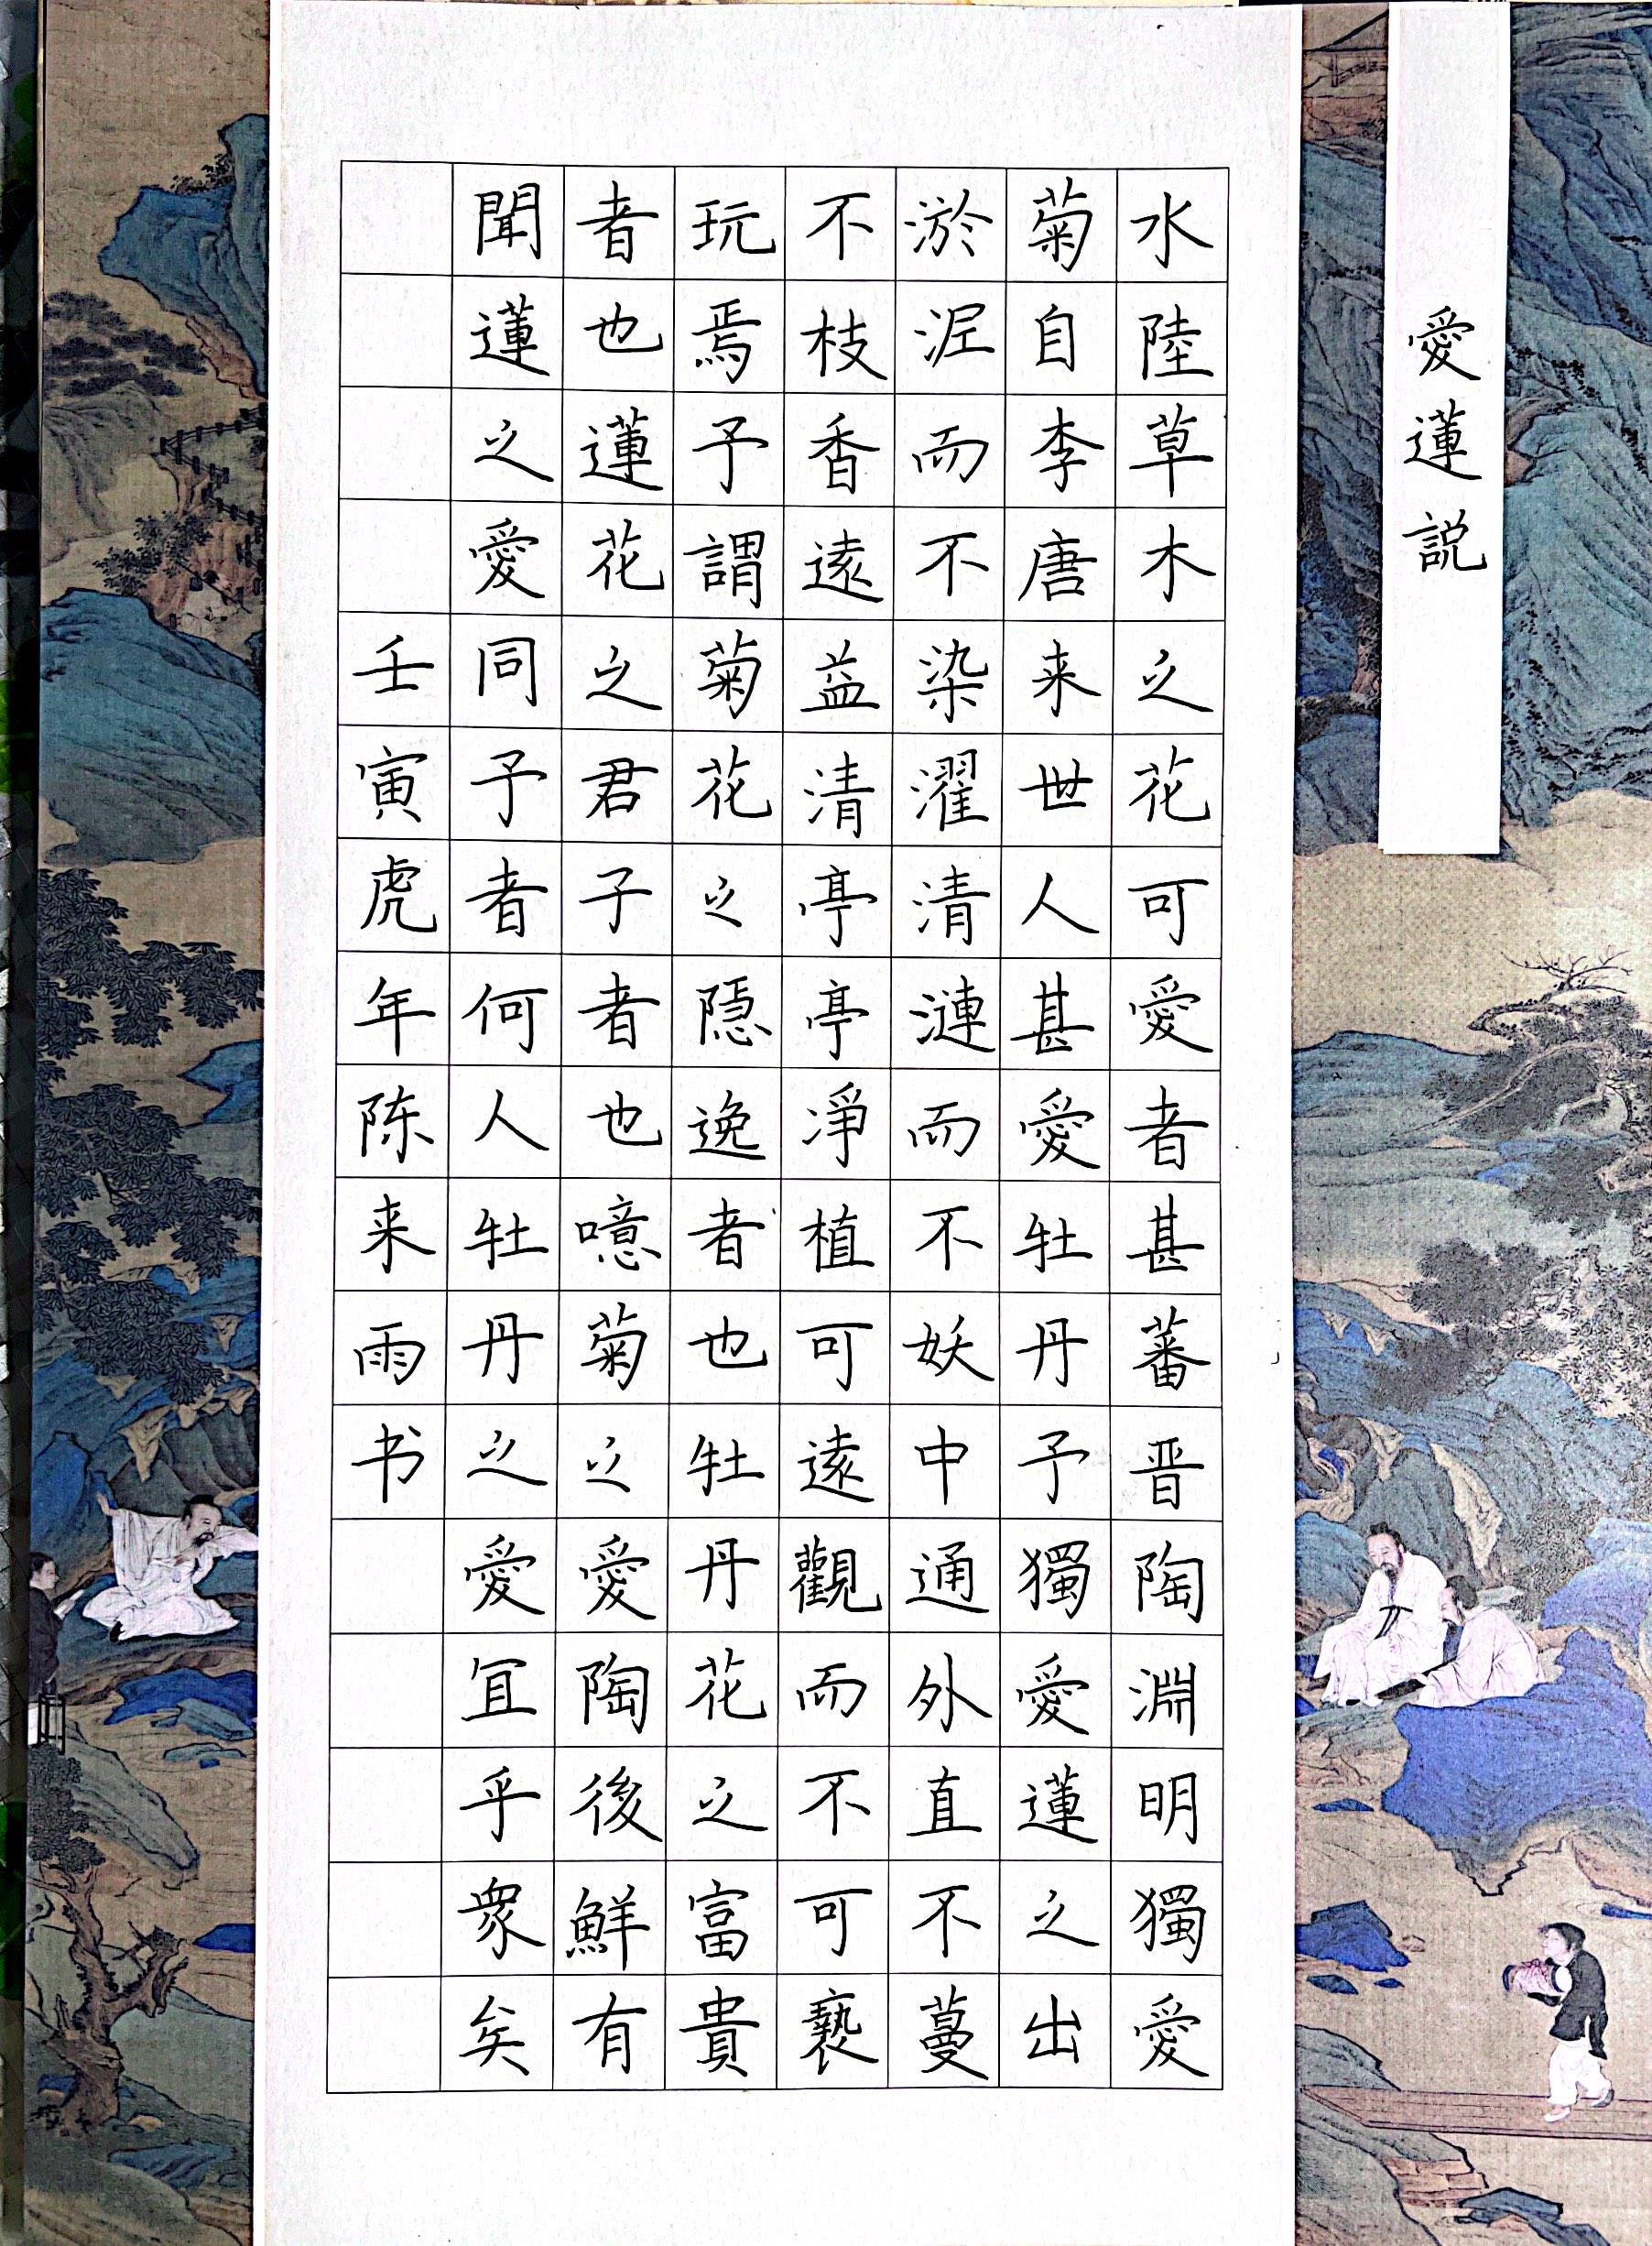 愛蓮説
水陸草木之花可愛者甚蕃晋陶淵明獨愛
菊自李唐来世人甚愛牡丹予獨愛蓮之出
淤泥而不染濯清漣而不妖中通外直不蔓
不枝香遠益清亭亭凈植可遠觀而不可褻
玩焉予謂菊花之隱逸者也牡丹花之富貴
者也蓮花之君子者也噫菊之愛陶後鮮有
聞蓮之愛同予者何人牡丹之愛宜乎眾矣
壬寅虎年陈来雨书